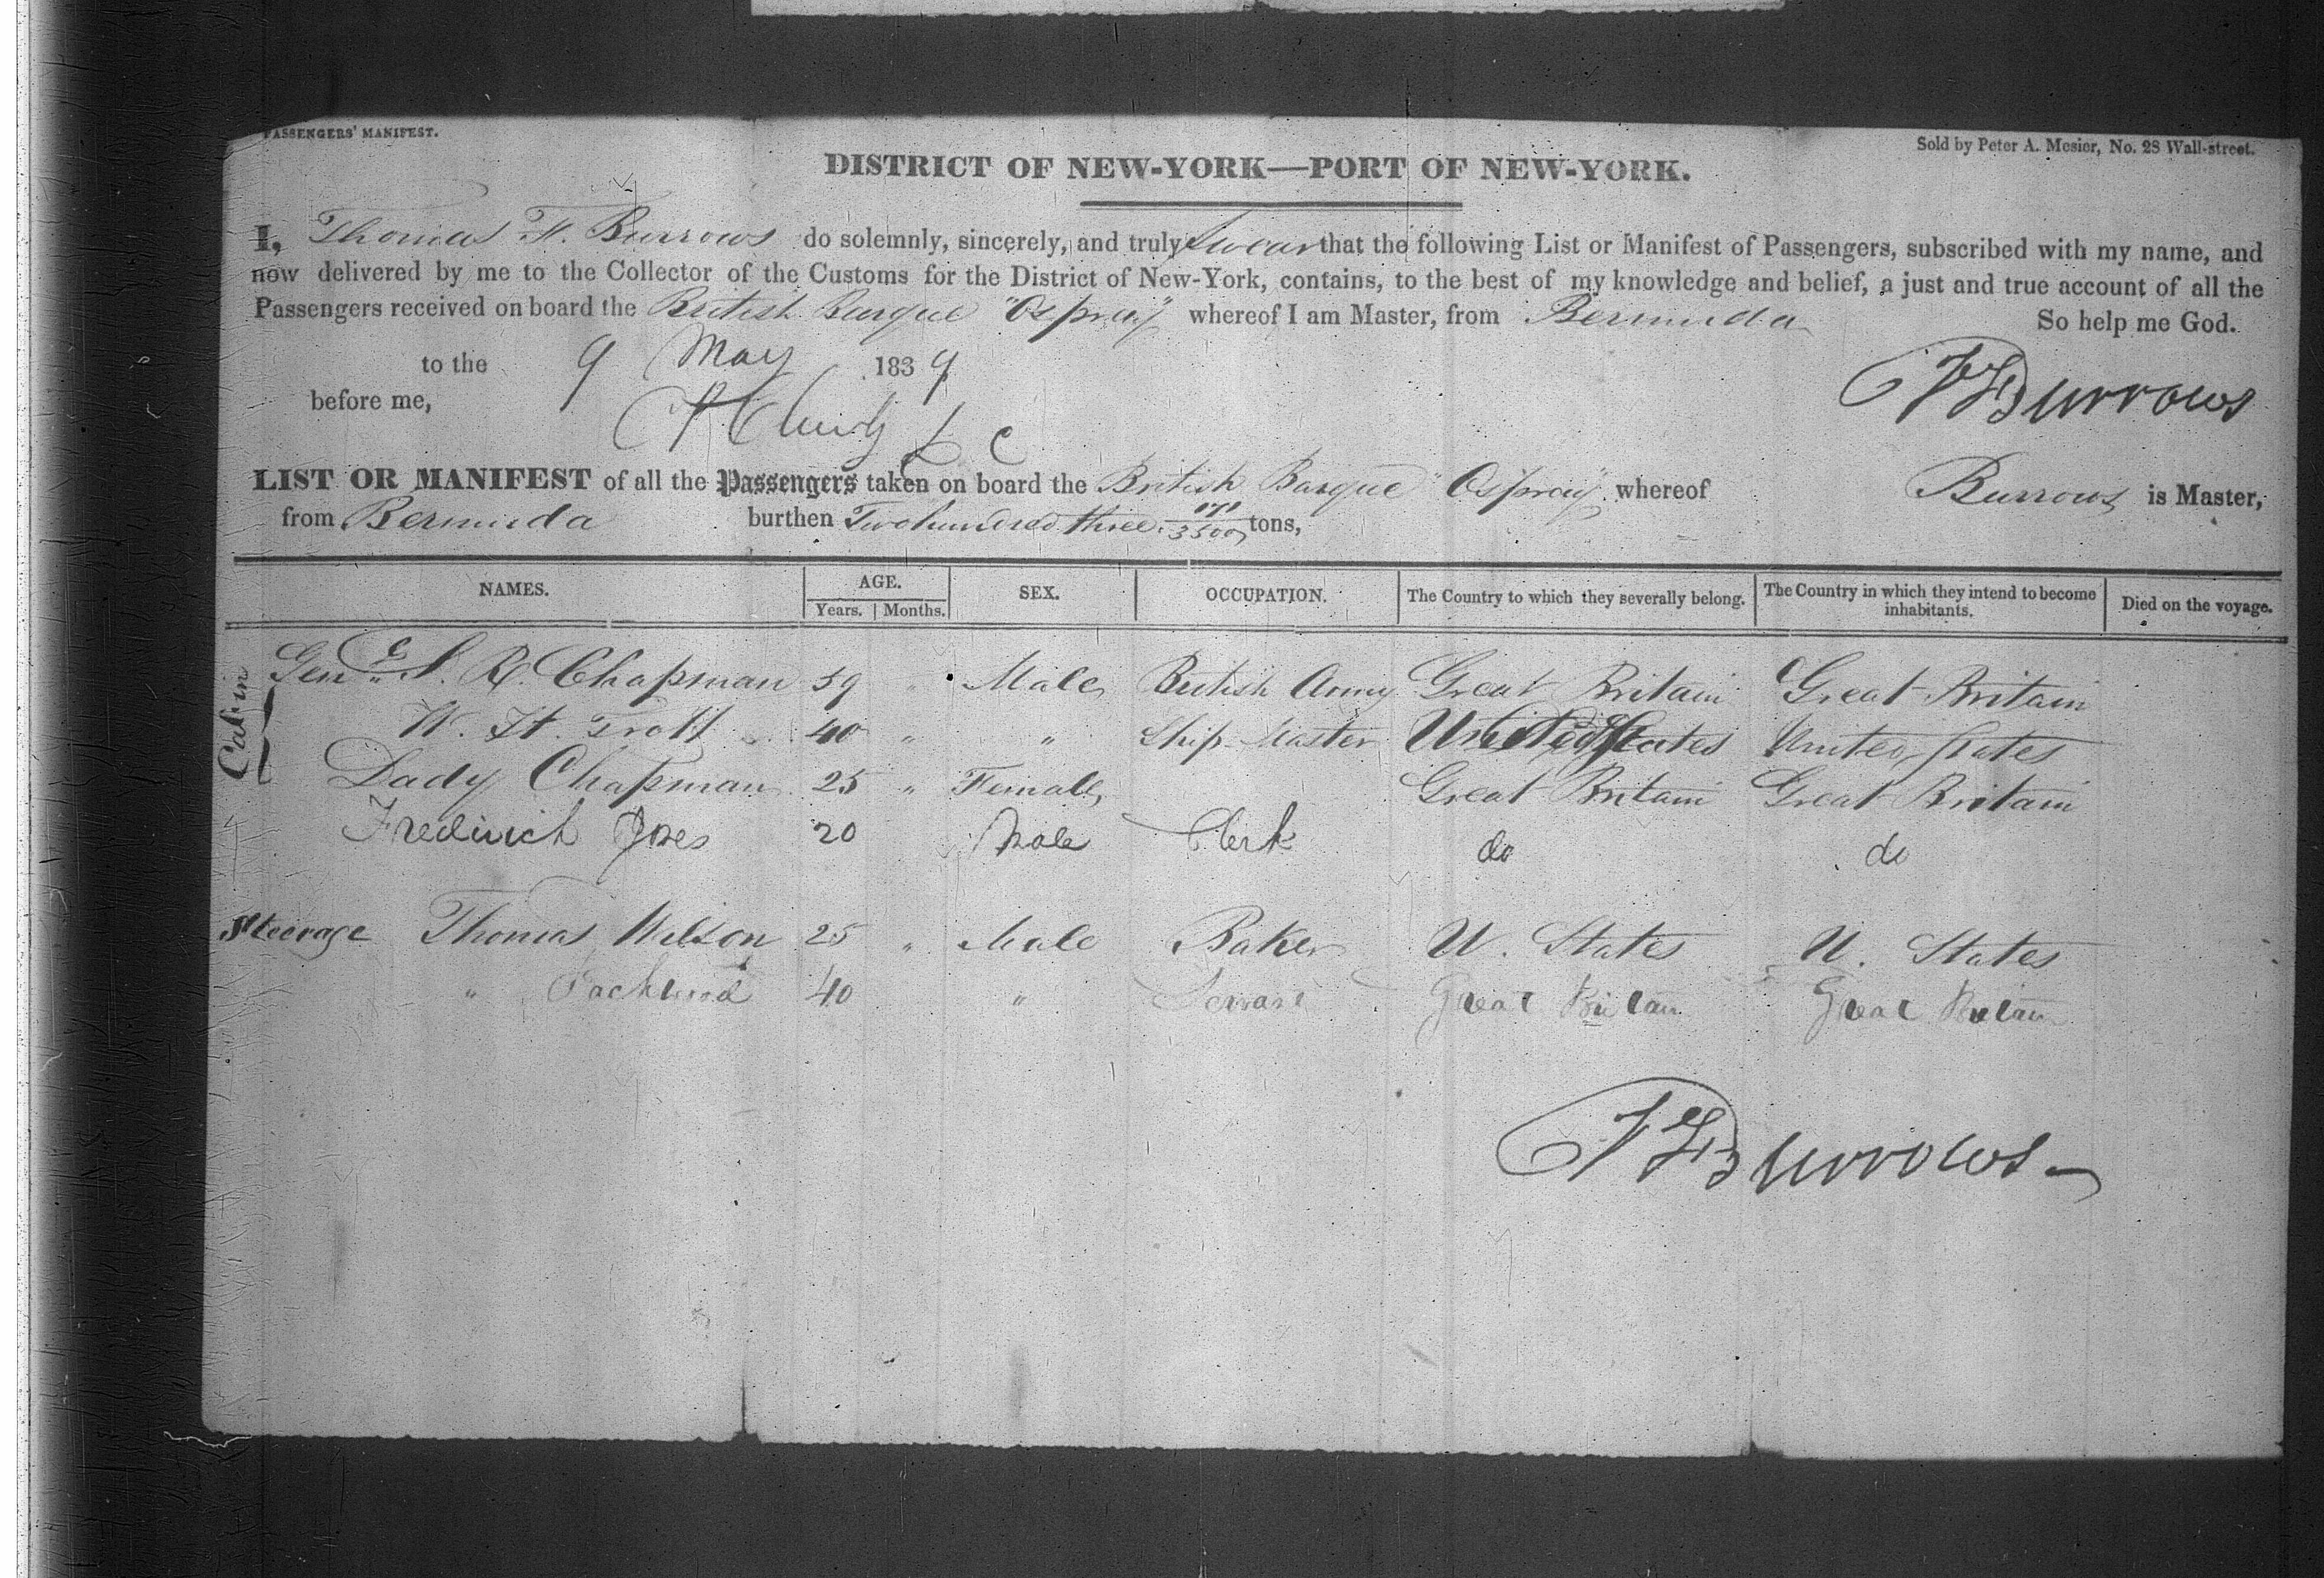 PASSENGERS' MANIFEST.
Sold by Peter A. Mesier, No. 28 Wall-street.
DISTRICT OF NEW-YORK—PORT OF NEW-YORK.
I, Thomas F. Burrows do solemnly, sincerely, and truly Swear that the following List or Manifest of Passengers, subscribed with my name, and
now delivered by me to the Collector of the Customs for the District of New-York, contains, to the best of my knowledge and belief, a just and true account of all the
Passengers received on board the British Barque "Osprey" whereof I am Master, from Bermuda So help me God.
to the 9 May 1839
before me,
Burrows
LIST OR MANIFEST of all the Passengers taken on board the British Barque "Osprey" whereof Burrows is Master,
from Bermuda burthen Two hundred three 3500 tons,
NAMES. AGE. SEX. OCCUPATION. The Country to which they severally belong. The Country in which they intend to become inhabitants. Died on the voyage.
Years. Months.
Cabin
Gen S. R. Chapman 59 " Male British Army Great Britain Great Britain
W. H. Trott 40 " " Ship Master United States United States
Lady Chapman 25 " Female Great Britain Great Britain
Frederick 20 Male Clerk do do
Steerage Thomas Wilson 25 " Male Baker U. States U. States
" Packwood 40 " Servant Great Britain Great Britain
Burrows